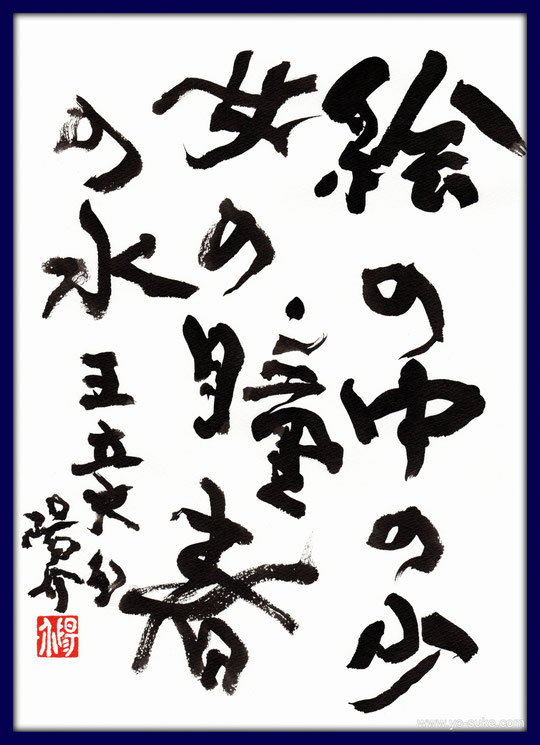 絵の中の少
女の瞳春
の水
陽介
www.yo-suke.com